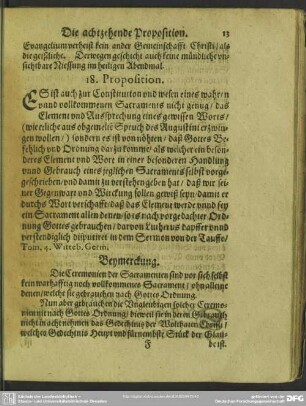 Die achtzehende Proposition. 13
Evangelium verheist kein ander Gemeinschafft Christi / als
die geistliche. Derwegen geschicht auch keine mündliche vn-
sichtbare Niessung im heiligen Abendmal.
18. Proposition.
ES ist auch zur Constitution vnd wesen eines wahren
vnd vollkommenen Sacraments nicht genug / das
Element vnd Aussprechung eines gewissen Worts /
(wie etliche aus obgemelte Spruch des Augustini erzwin-
gen wollen /) sondern es ist von nöhten / daß Gottes Be-
fehlich vnd Ordnung darzu komme als welcher ein beson-
deres Element vnd Wort in einer besonderen Handlung
vnnd Gebrauch eines jeglichen Sacramentes selbst vorge-
geschrieben vnd damit zu verstehen geben hat / daß wir sei-
ner Gegenwart vnd Wirckung sollen gewiß seyn / damit er
durchs Wort verschafft / daß das Element werde vnnd sey
ein Sacrament allen denen so es nach vorgedachter Ord-
nung Gottes gebrauchen / davon Lutherus dapffer vnnd
verstendiglich disputiret in dem Sermon von der Tauffe /
Tom. 4. Witteb. Germ.
Beymerckung.
Die Ceremonien der Sacramenten sind vor sich selbst
kein warhafftig noch vollkommenes Sacrament / ohn alleine
denen / welche sie gebrauchen nach Gottes Ordnung.
Nun aber gebrauchen die Ungläubigen solcher Ceremo-
nien nit nach Gottes Ordnung / dieweil sie in deren Gebrauch
nicht in acht nehmen das Gedechtnus der Wolthaten Christi /
welches Gedechtnis Haupt vnd fürnembste Stück der Glau-
F be ist.